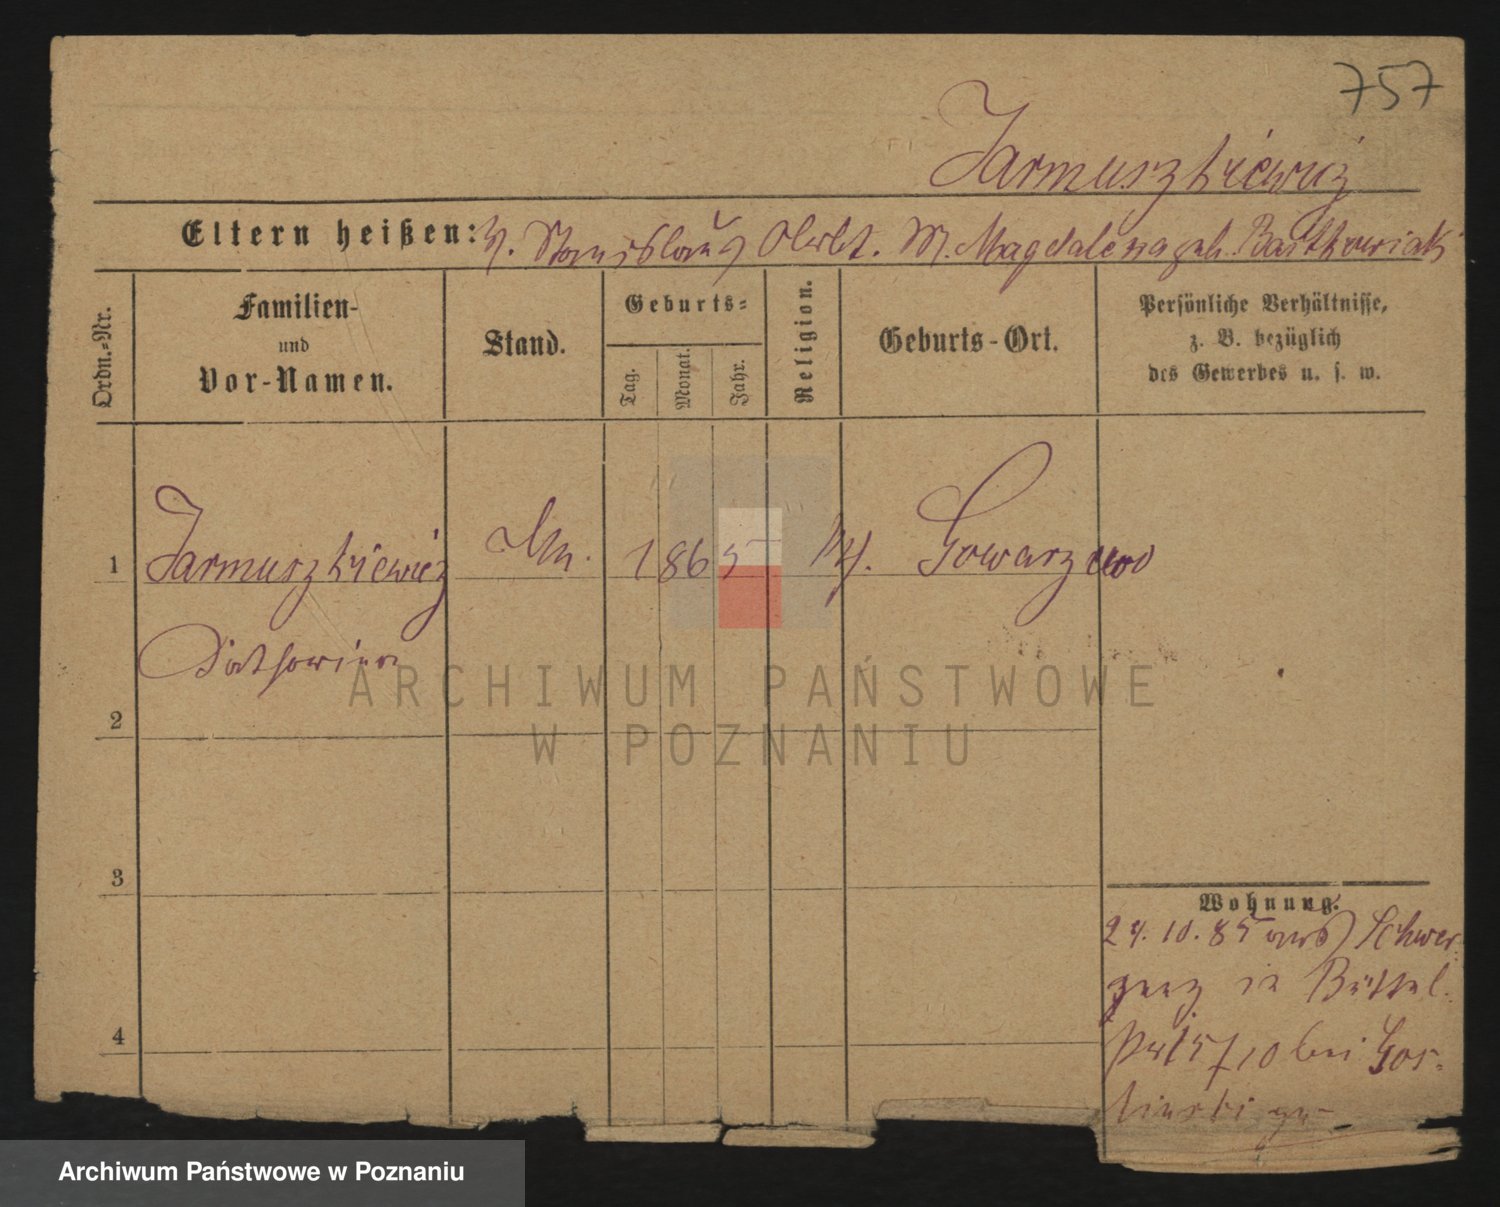 757
Jarmuszkiewicz
Eltern heißen: V. Stanislaus Arbt. M. Magdalena geb. Bartkowiak
Ordn.-Nr.
Familien-
und
Vor-Namen.
Stand.
Geburts-
Tag.
Monat.
Jahr.
Religion.
Geburts-Ort.
Persönliche Verhältnisse,
z. B. bezüglich
des Gewerbes u. s. w.
1 Jarmuszkiewicz 1865 Gowarzewo
Katharina
2
3
4
Wohnung.
24.10.85 aus Schwer-
senz in Büttel-
10 bei Gos-
linski
ARCHIWUM PAŃSTWOWE
W POZNANIU
Archiwum Państwowe w Poznaniu